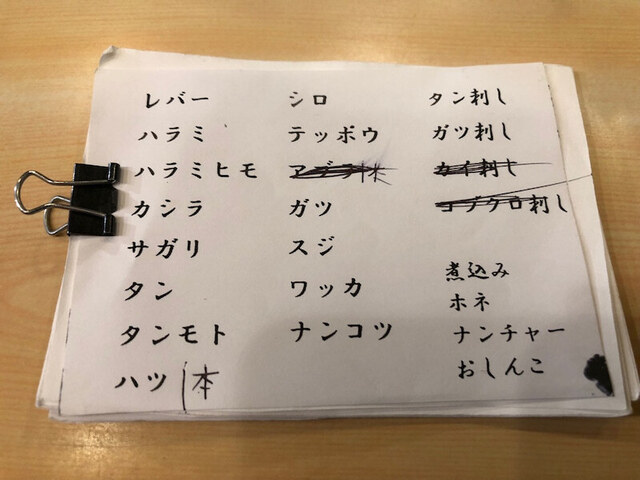 レバー
ハラミ
ハラミヒモ
カシラ
サガリ
タン
タンモト
ハツ 1本
シロ
テッポウ
アブラ 1本
ガツ
スジ
ワッカ
ナンコツ
タン刺し
ガツ刺し
カイ刺し
コブクロ刺し
煮込み
ホネ
ナンチャー
おしんこ